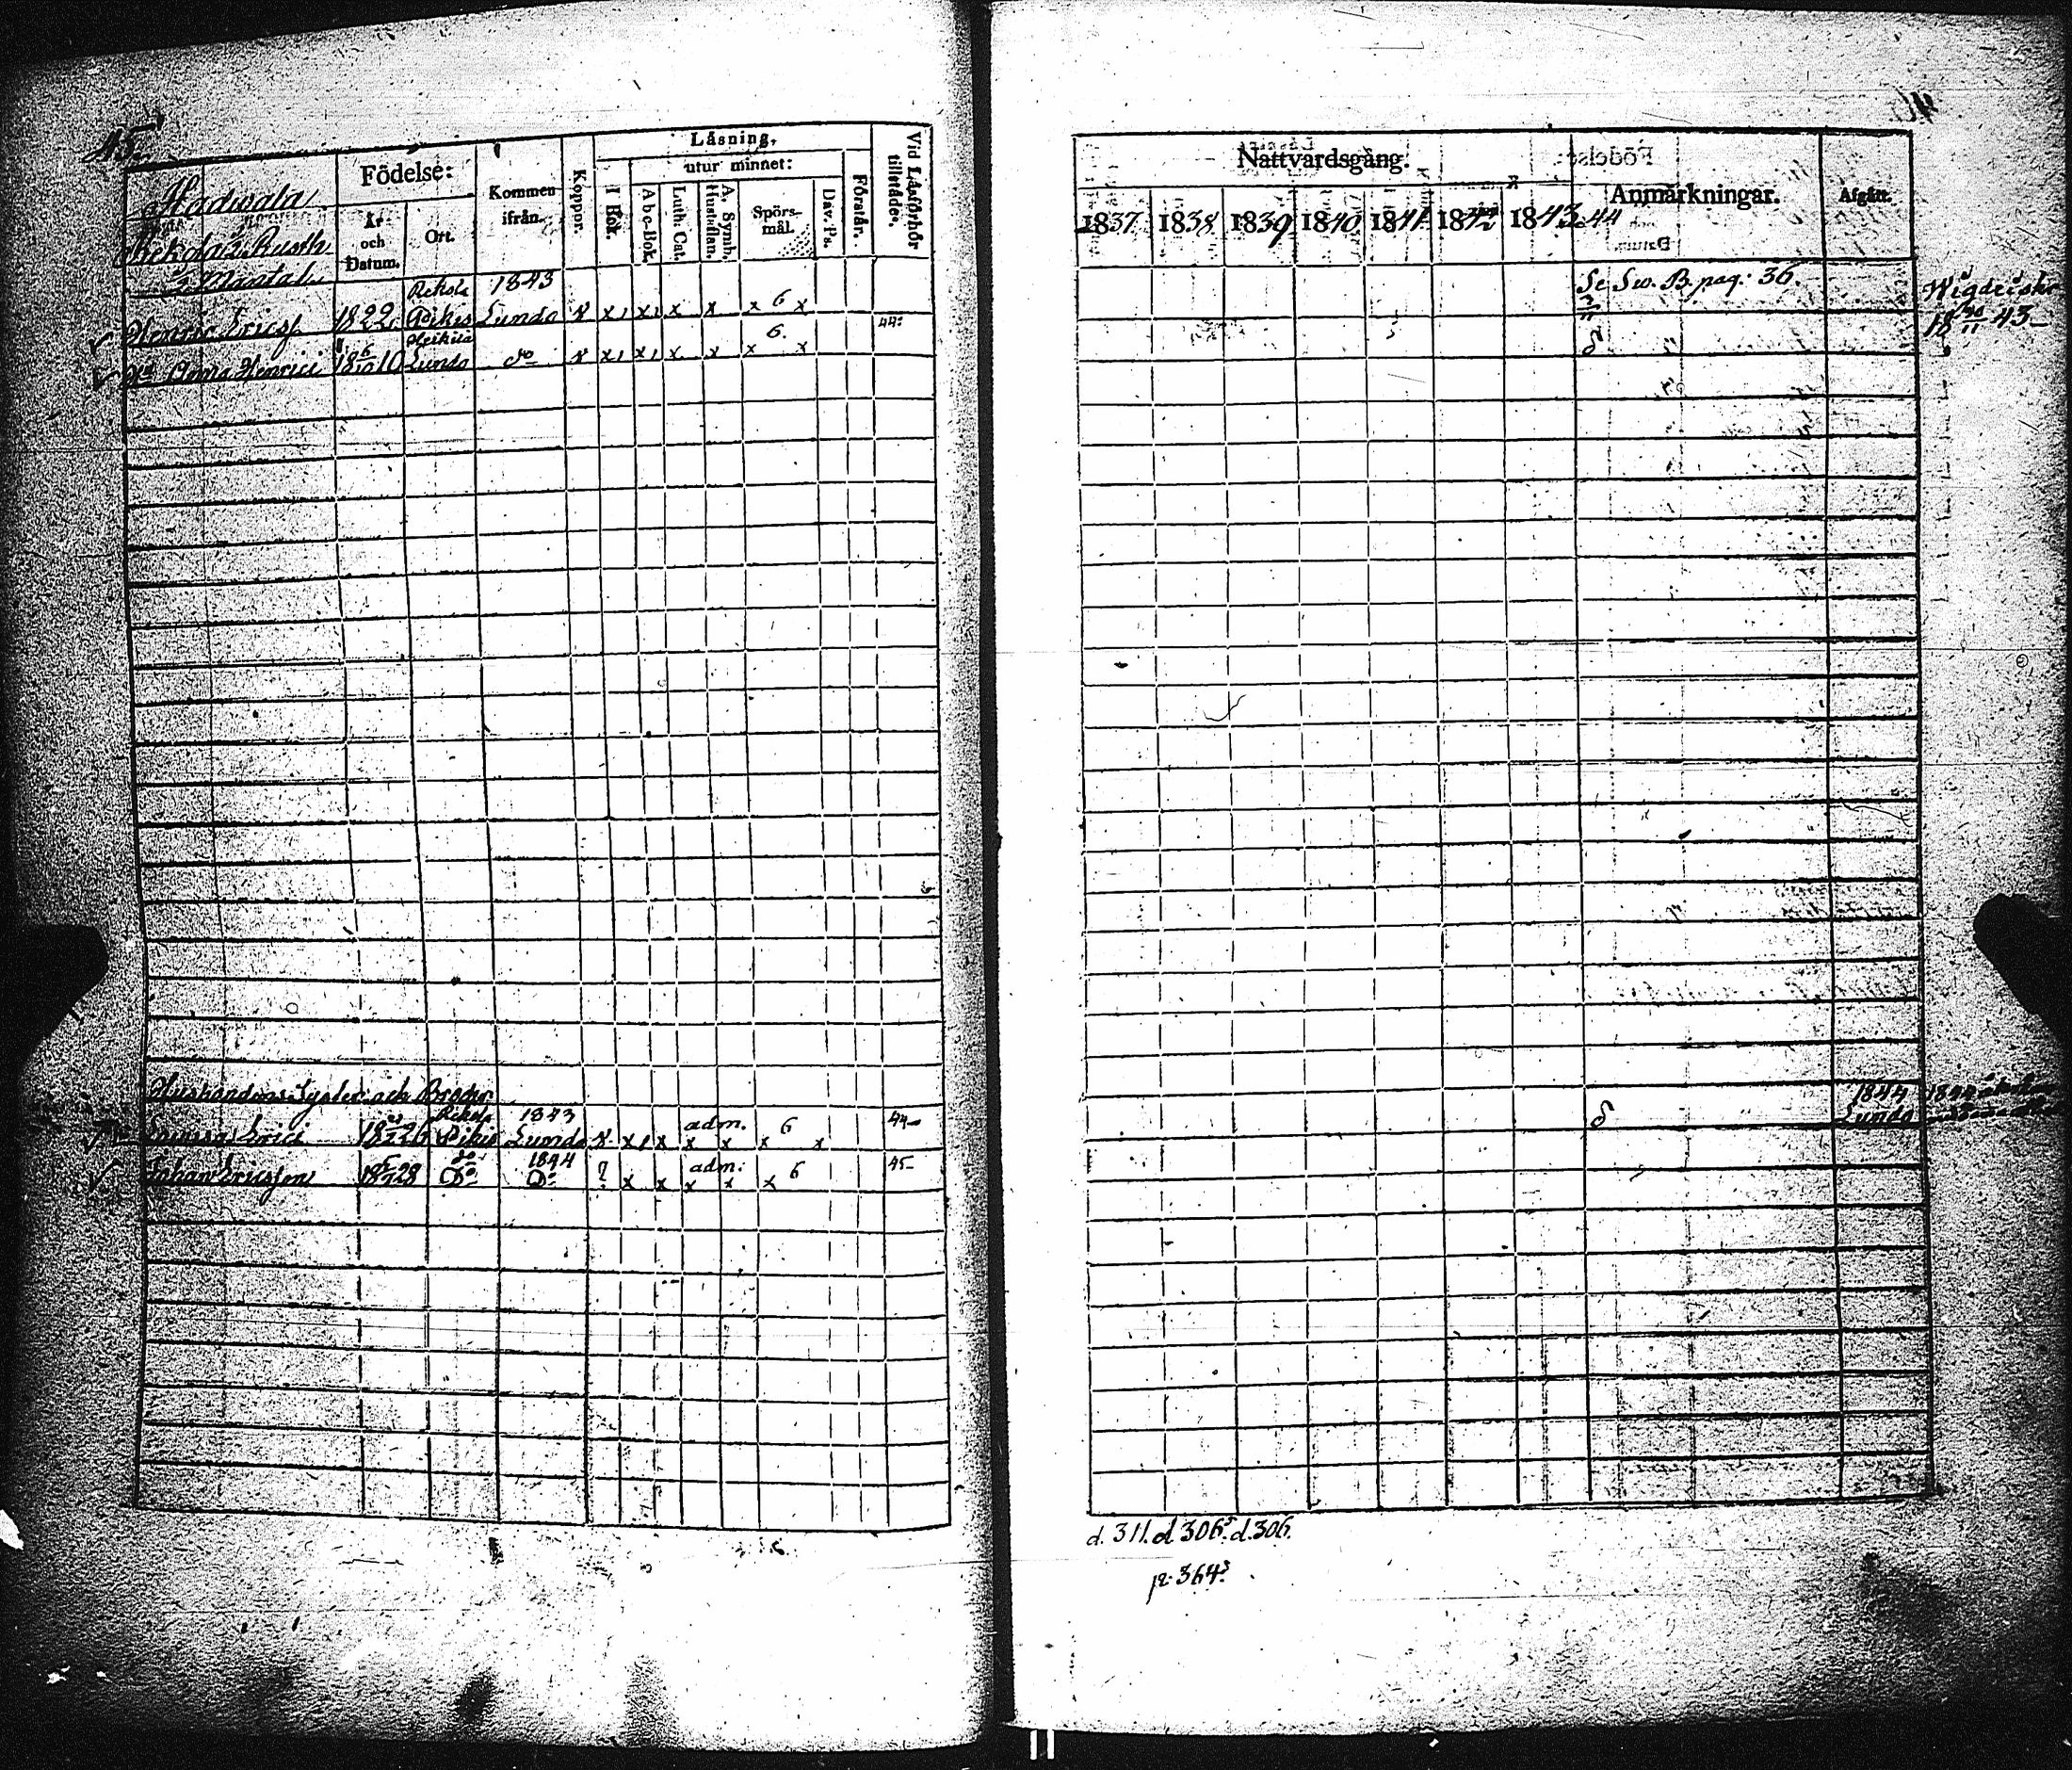 45.
Hadvala
Rekola 2 Rusth
2/3 Mantal
Födelse:
År och Datum.
Ort.
Kommen ifrån.
Koppor.
Läsning,
utur minnet:
I Bok.
A b c-Bok.
Luth. Cat.
A. Symb. Hustaflan.
Spörs-mål.
Dav. Ps.
Förstår.
Vid Läsförhör tillstädes.
Henric Ericss. 1822 Rekola Pikis 1843 Lundo x x x x x x 6 x
Hu Anna Henrici 18 6/10 10 Heikila Lundo do x x x x x x 6. x 44:
Husbondens Syster och Broder
Erici 26 Rekola Pikis 1843 Lundo x x x x adm. x x x 6 x 44
Johan Ericsson 18 28 do Do 1844 Do ? x x adm: x x x 6 45
Nattvardsgång.
1837 1838 1839 1840 1841 1842 1843.44
Anmärkningar.
Afgått.
Se Sw. B. pag: 36.
Wigde
18 30/11 43
1844
Lundo
d. 311. d 306. d. 306.
p. 364